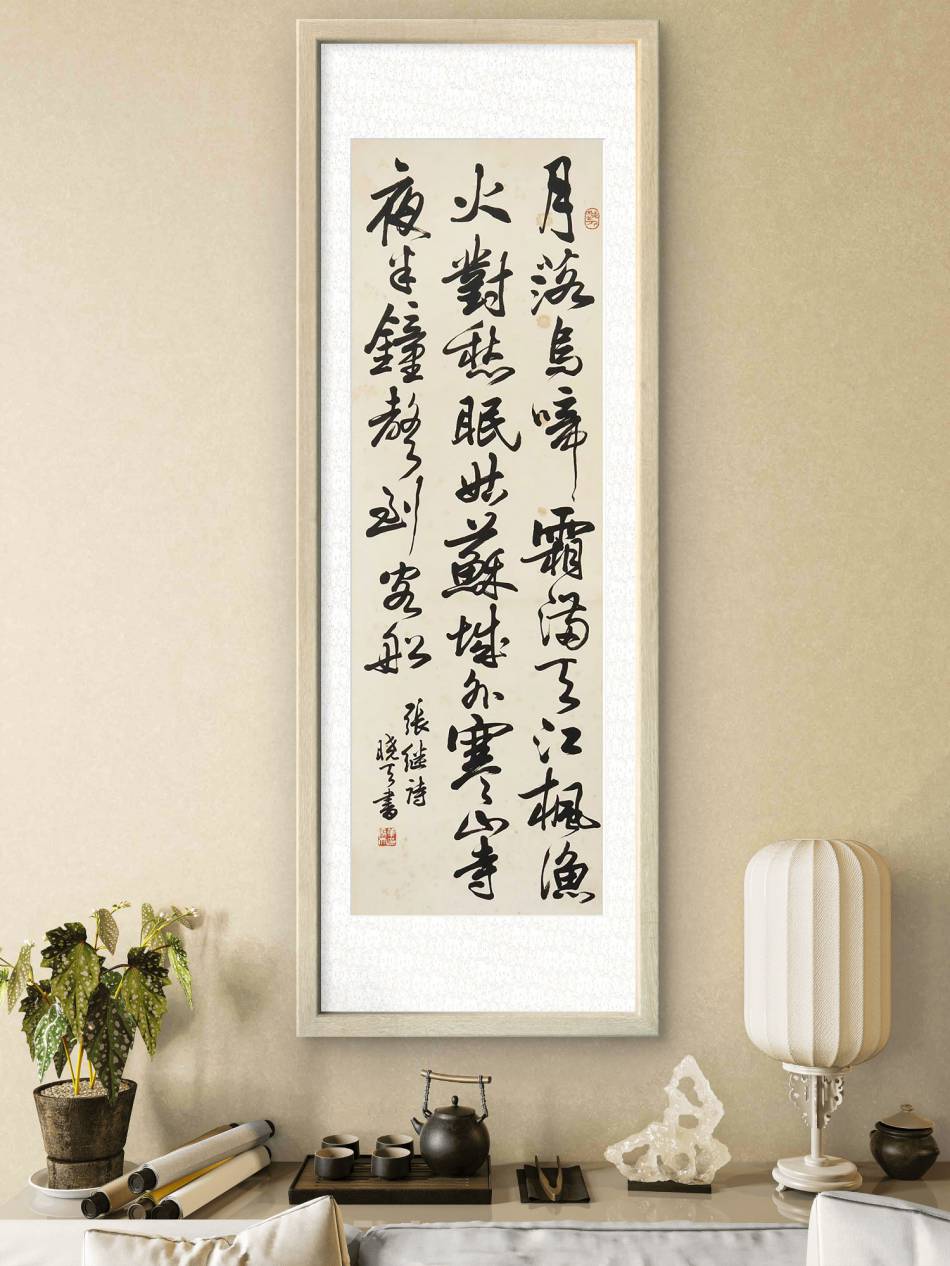 月落烏啼霜满天江楓漁
火對愁眠姑蘇城外寒山寺
夜半鐘聲到客船
張继詩
曉天書